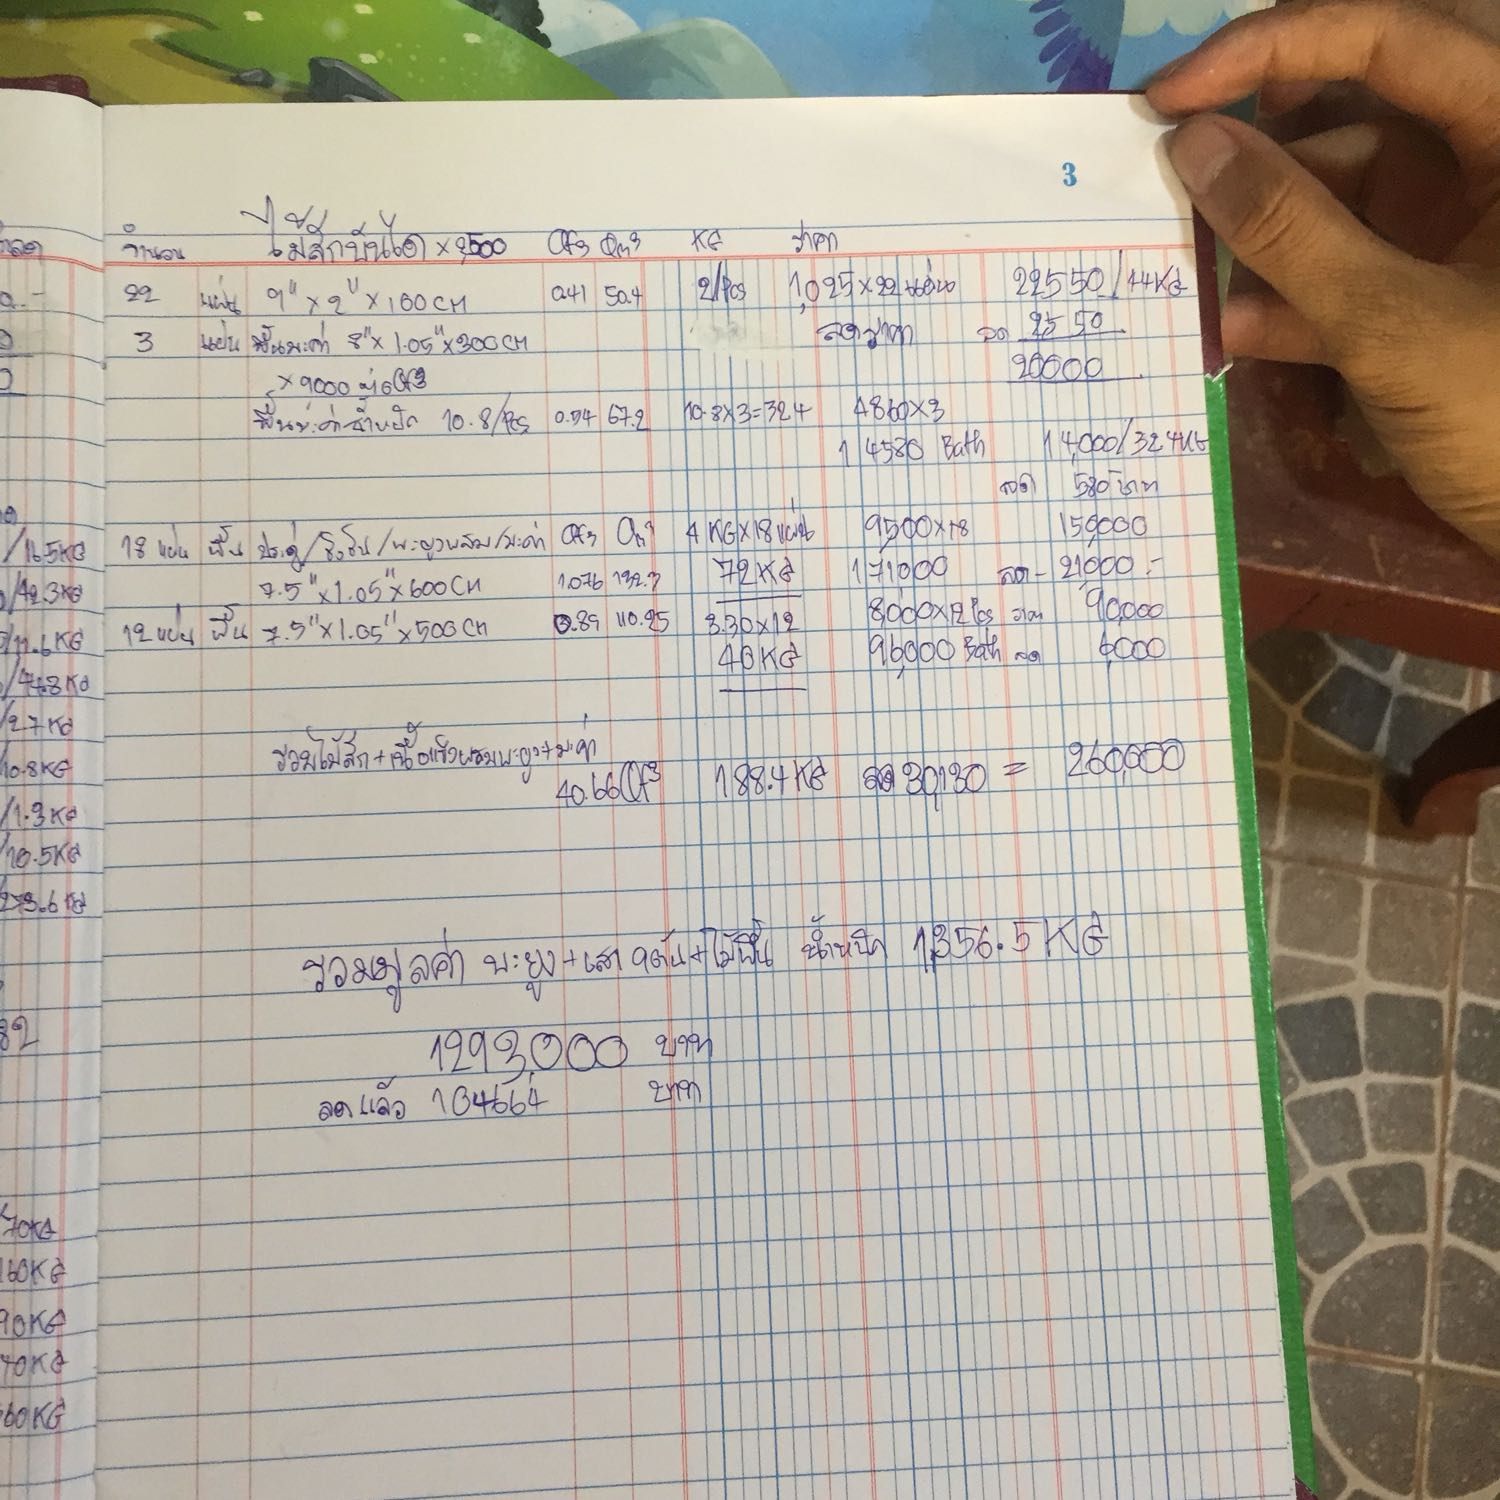 3
จำนวน ไม้สักบันได × 2,500 Qf3 Qm3 KG ราคา
22 แผ่น 9" × 2" × 100 CM 0.41 50.4 2/Pcs 1,025 × 22 แผ่น 22550/44KG
3 แผ่น พื้นมะค่า 8" × 1.05" × 300 CM ลดราคา ลด 2550
× 9000 ต่อ Qf3 20000
พื้นมะค่าน้ำหนัก 10.8/Pcs 0.54 67.2 10.8×3=32.4 4860×3
14580 Bath 14,000/32.4KG
ลด 580 บาท
18 แผ่น พื้น ประดู่/ชิงชัน/พะยูงผสม/มะค่า Qf3 Qm3 4 KG×18 แผ่น 9500×18 150000
7.5" × 1.05" × 600 CM 1.076 132.3 72 KG 171000 ลด - 21000.-
12 แผ่น พื้น 7.5" × 1.05" × 500 CM 0.89 110.25 3.30×12 8000×12 Pcs 90,000
40 KG 96,000 Bath ลด 6,000
รวมไม้สัก+เนื้อแข็งผสมพะยูง+มะค่า
40.66 Qf3 188.4 KG ลด 30,130 = 260,000
รวมมูลค่า พะยูง+เสา 9ต้น+ไม้พื้น น้ำหนัก 1,356.5 KG
1293,000 บาท
ลดแล้ว 104664 บาท
/16.5KG
/42.3KG
/11.6KG
/74.8KG
/2.7 KG
10.8KG
/1.3 KG
/10.5KG
273.6 KG
82
70KG
160KG
90KG
70KG
60KG